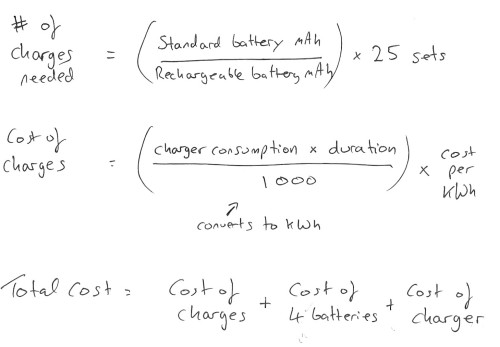 # of
charges
needed
= (Standard battery mAh
Rechargeable battery mAh) × 25 sets
Cost of
charges
= (charger consumption × duration
1000) × cost
per
kWh
↗
converts to kWh
Total cost = Cost of
charges + Cost of
4 batteries + Cost of
charger